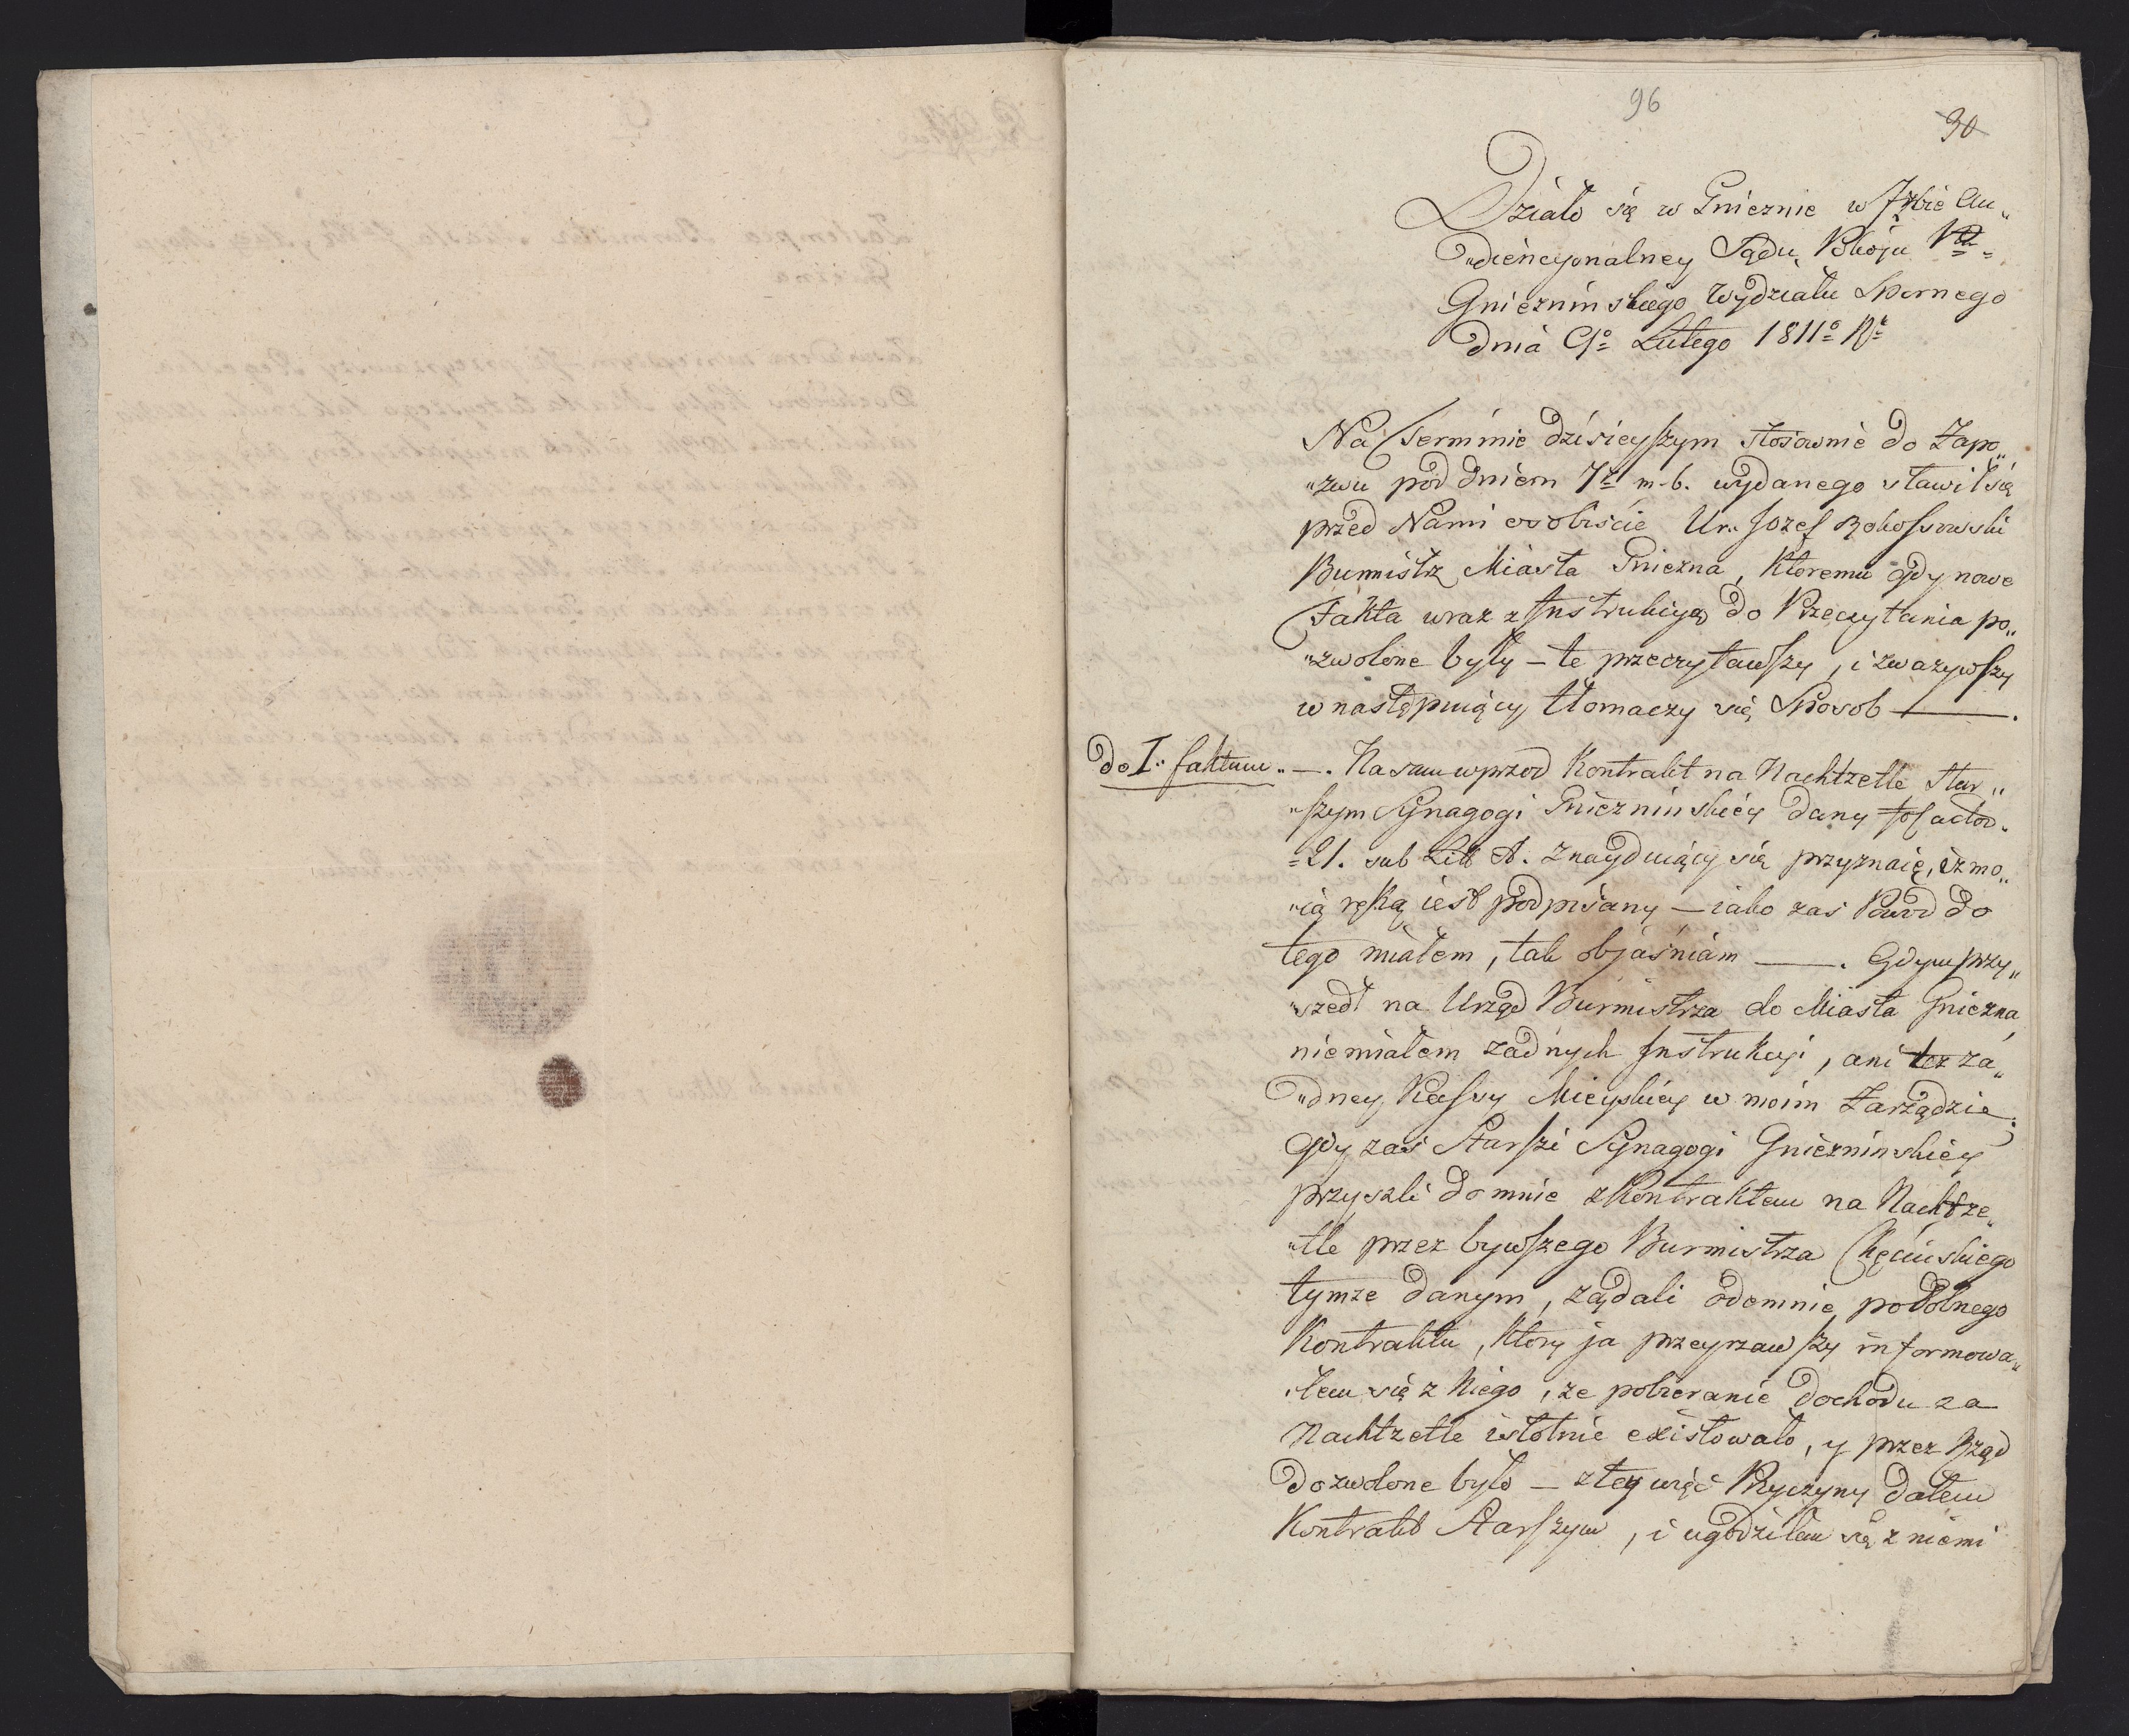 96
30
Działo się w Gnieznie w Izbie Au„
„diencyonalney Sądu Pokoju Ptu
Gniezninskiego Wydziału Spornego
dnia 9º Lutego 1811º Rº
Na Terminie dzisieyszym stosownie do Zapo„
„zwu pod dniem 7º m. b. wydanego stawił się
przed Nami osobiście Ur. Jozef Rokossowski
Burmistrz Miasta Gniezna, ktoremu gdy nowe
Fakta wraz z Instrukcyą do Przeczytania po„
„zwolone były – te przeczytawszy, i zwazywszy
w następuiący tłomaczy się Sposob —.
do I. faktum. —. Na sam wprzod Kontrakt na Nachtzetle Star„
„szym Synagogi Gnieznińskiey dany fol actor.
21. sub Lit A. znayduiący się przyznaię, iż mo„
„ią ręką iest podpisany – iako zas Powod do
tego miałem, tak objaśniam —. Gdym przy„
„szedł na Urząd Burmistrza do Miasta Gniezna
niemiałem zadnych Instrukcyi, ani tez za„
„dney Kassy Mieyskiey w moim Zarządzie.
Gdy zaś Starsi Synagogi Gnieznińskiey
przyszli do mnie z Kontraktem na Nachtze„
„tle przez bywszego Burmistrza Chęcińskiego
tymze danym, ządali odemnie podobnego
Kontraktu, ktory ja przeyrzawszy informowa„
„łem się z niego, ze pobieranie Dochodu za
Nachtzetle istotnie existowało, y przez Rząd
dozwolone było – z tey więc Przyczyny dałem
Kontrakt Starszym, i ugodziłem się z niemi